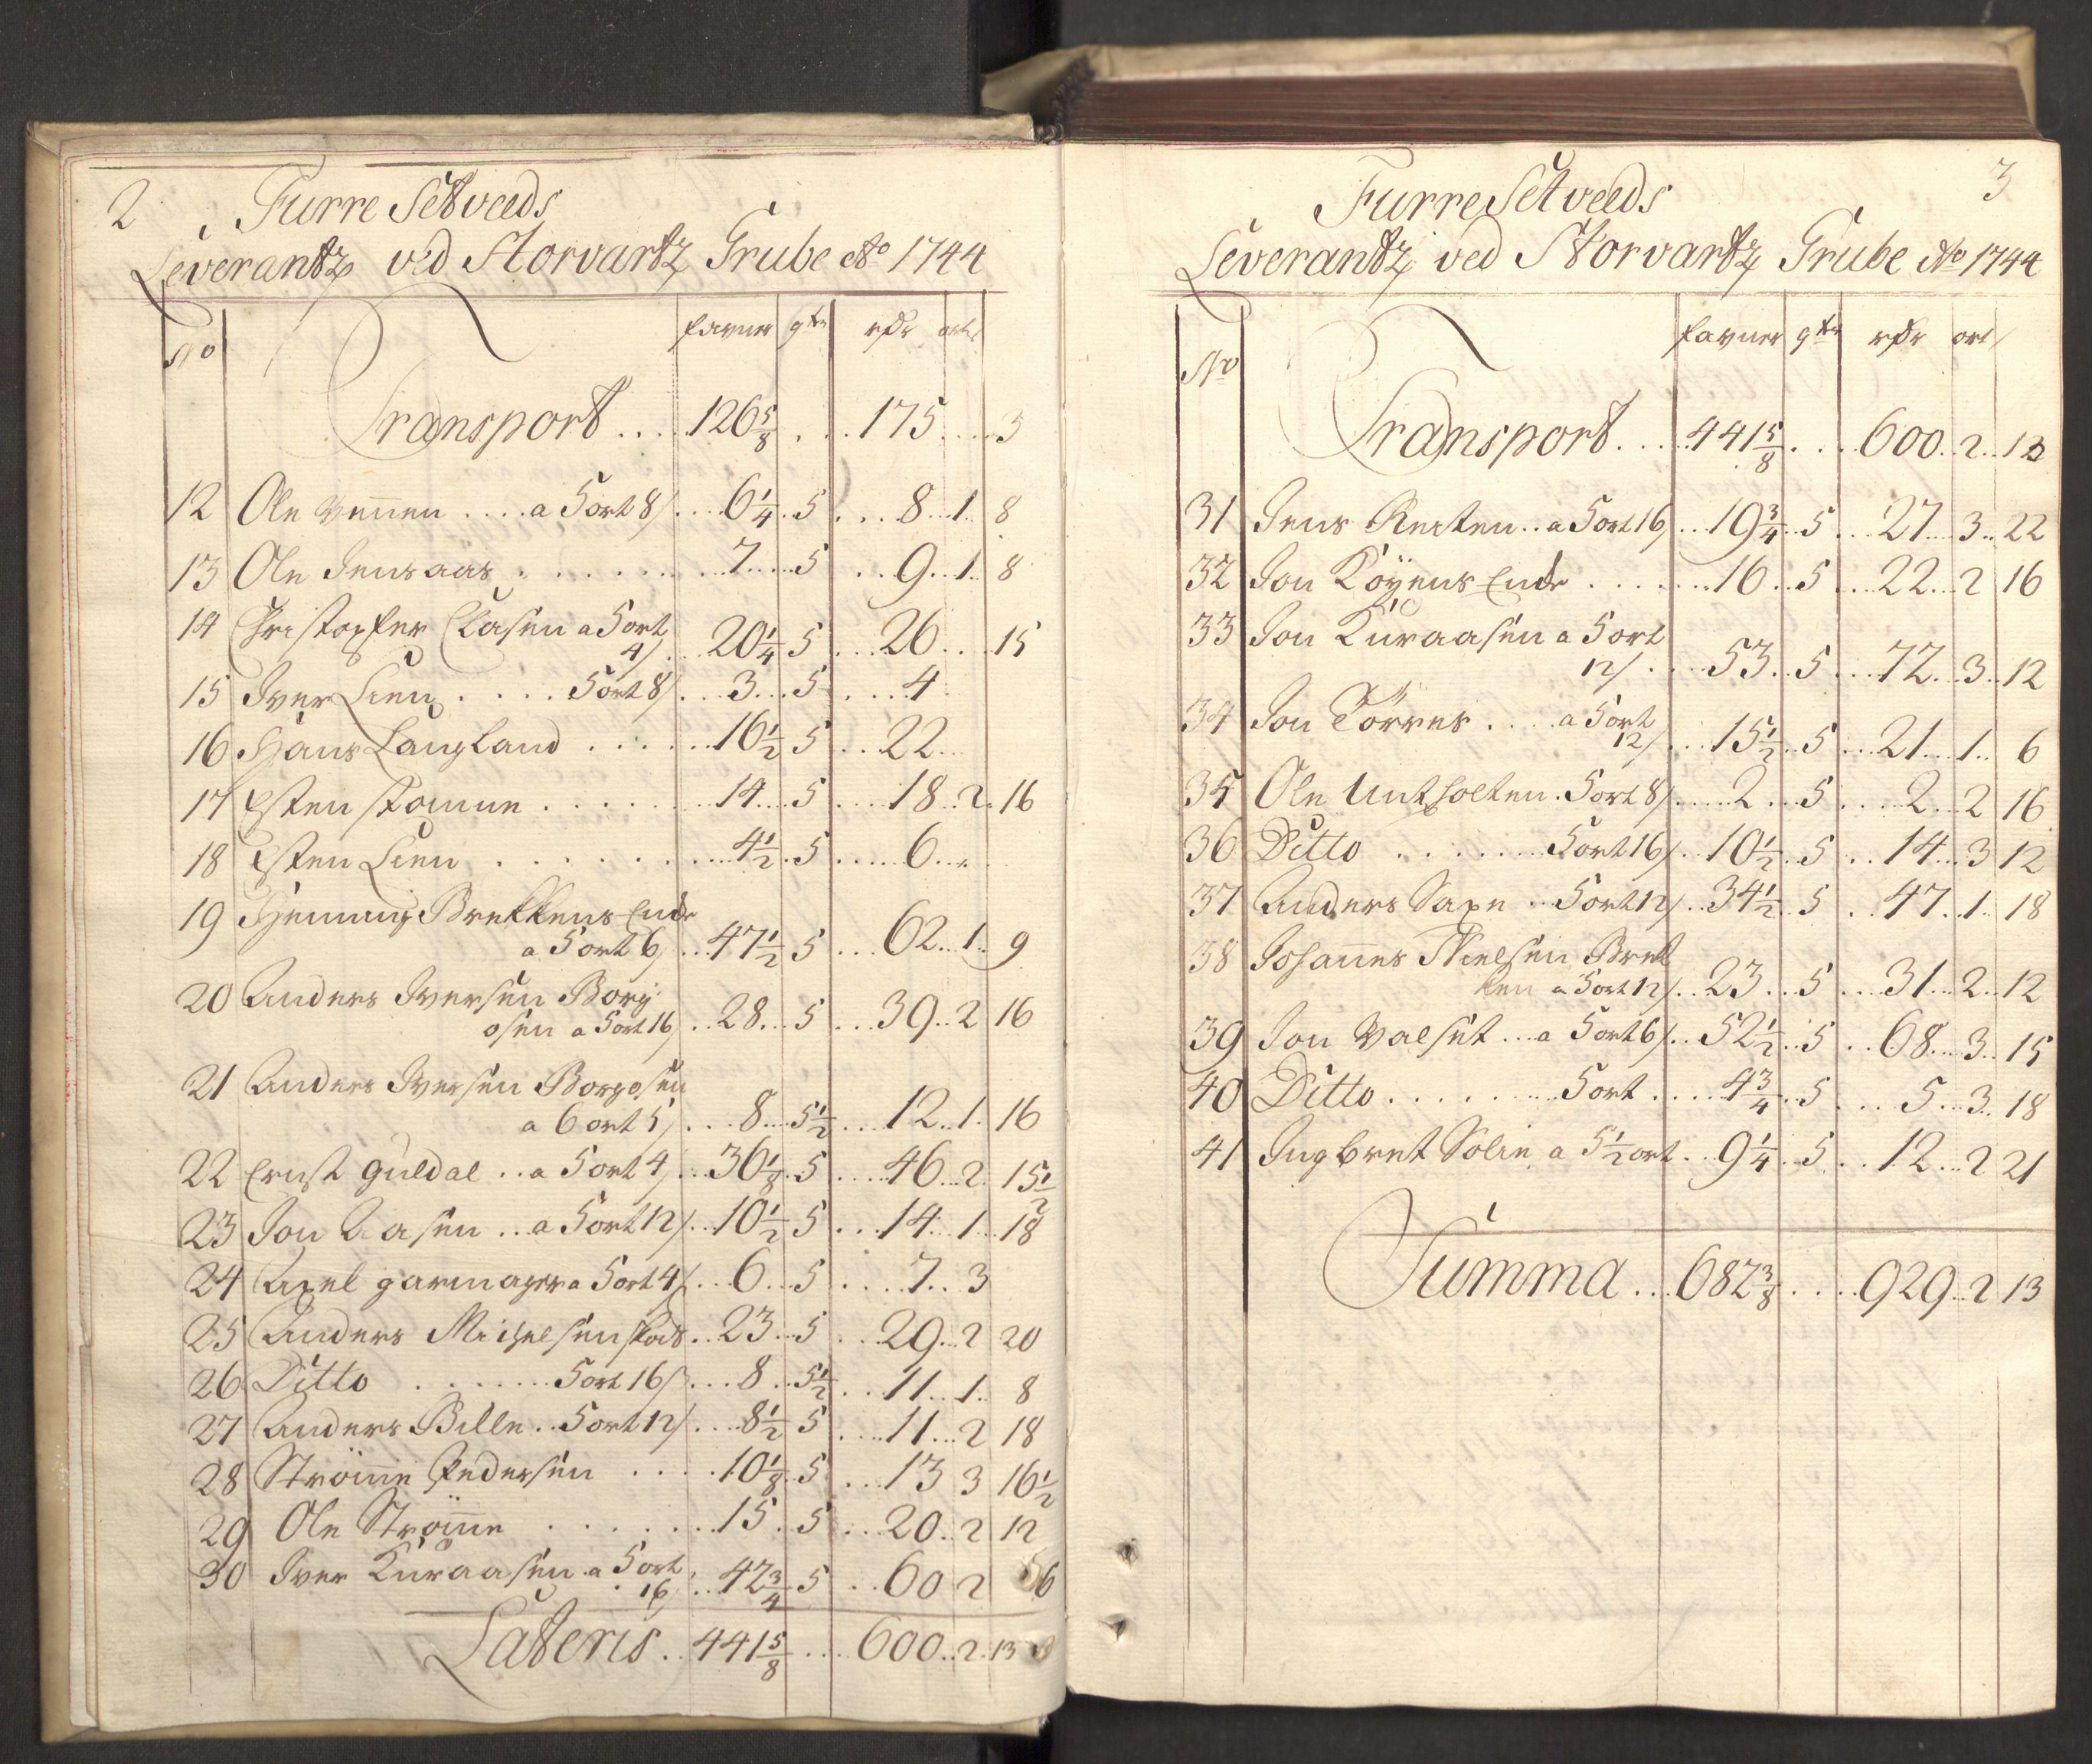 2 Furre Setveeds
Leverantz ved Storvartz Grube Ao 1744
No favner qtr rdr ort
Transport .... 126 5/8 ... 175 .... 3
12 Ole Vennen .... a 5 ort 8/ ... 6 1/4 . 5 ... 8 . 1 . 8
13 Ole Jensaas ....... 7 .... 5 .. 9 . 1 . 8
14 Christopher Clasen a 5 ort
4/ .. 20 1/4 5 ... 26 ... 15
15 Iver Lien .... 5 ort 8/ ... 3 ... 5 .... 4
16 Hans Langland ...... 16 1/2 5 .. 22 ..
17 Esten Stamne ....... 14 ... 5 .... 18 .. 2 . 16
18 Esten Lien ....... 4 1/2 . 5 ..... 6 ...
19 Heming Brekkens Enke
a 5 ort 6/ ... 47 1/2 5 ... 62 .. 1 .. 9
20 Anders Iversen Borg
osen a 5 ort 16/ .. 28 ... 5 ... 39 .. 2 16
21 Anders Iversen Borgosen
a 6 ort 5/ ... 8 ... 5 1/2 ... 12 .. 1 . 16
22 Ernst Guldal .. a 5 ort 4/ ... 36 1/8 . 5 .... 46 ... 2 . 15 1/2
23 Jon Aasen ... a 5 ort 12/ .. 10 1/2 5 ... 14 ... 1 ... 18
24 Axel garmager a 5 ort 4/ ... 6 ... 5 .... 7 .. 3
25 Anders Michelsen .. 23 ... 5 .. 29 .. 2 20
26 Ditto ....... 5 ort 16/ .... 8 .. 5 1/2 ... 11 ... 1 .. 8
27 Anders Bille .. 5 ort 12/ .... 8 1/2 5 .... 11 ... 2 18
28 Strönne Pedersen ..... 10 1/8 . 5 ... 13 3 16 1/2
29 Ole Strönne ...... 15 . 5 ... 20 .. 2 12
30 Iver Kuraasen a 5 ort
16/ .. 42 3/4 5 .. 60 2 6
Lateris .. 441 5/8 .... 600 .. 2 . 13
3
Furre Setveeds
Leverantz ved Storvartz Grube Ao 1744
No favner qtr rdr ort
Transport .... 441 5/8 .... 600 .. 2 .. 13
31 Jens Reiten .. a 5 ort 16/ .. 19 3/4 .. 5 ... 27 .... 3 .. 22
32 Jon Köyens Enke ....... 16 .. 5 ... 22 ... 2 16
33 Jon Kuraasen a 5 ort
12/ .... 53 .. 5 ... 72 .. 3 .. 12
34 Jon Törres .... a 5 ort
12/ ... 15 1/2 .. 5 ... 21 ... 1 .. 6
35 Ole Antsolten . 5 ort 8/ .... 2 ... 5 .... 2 .. 2 16
36 Ditto ....... 5 ort 16/ .. 10 1/2 .. 5 .. 14 ... 3 12
37 Anders Saxe .. 5 ort 12/ .. 34 1/2 .. 5 .. 47 .. 1 .. 18
38 Johannes Nielsen Brek
ken a 5 ort 12/ .. 23 ... 5 .... 31 .. 2 .. 12
39 Jon Valset ... a 5 ort 6/ .. 52 1/2 .. 5 .. 68 ... 3 .. 15
40 Ditto ........ 5 ort .... 4 3/4 .. 5 ... 5 ... 3 .. 18
41 Ingbret Solie a 5 1/2 ort .. 9 1/4 .. 5 .. 12 ... 2 21
Summa ... 687 3/8 .... 929 .. 2 13